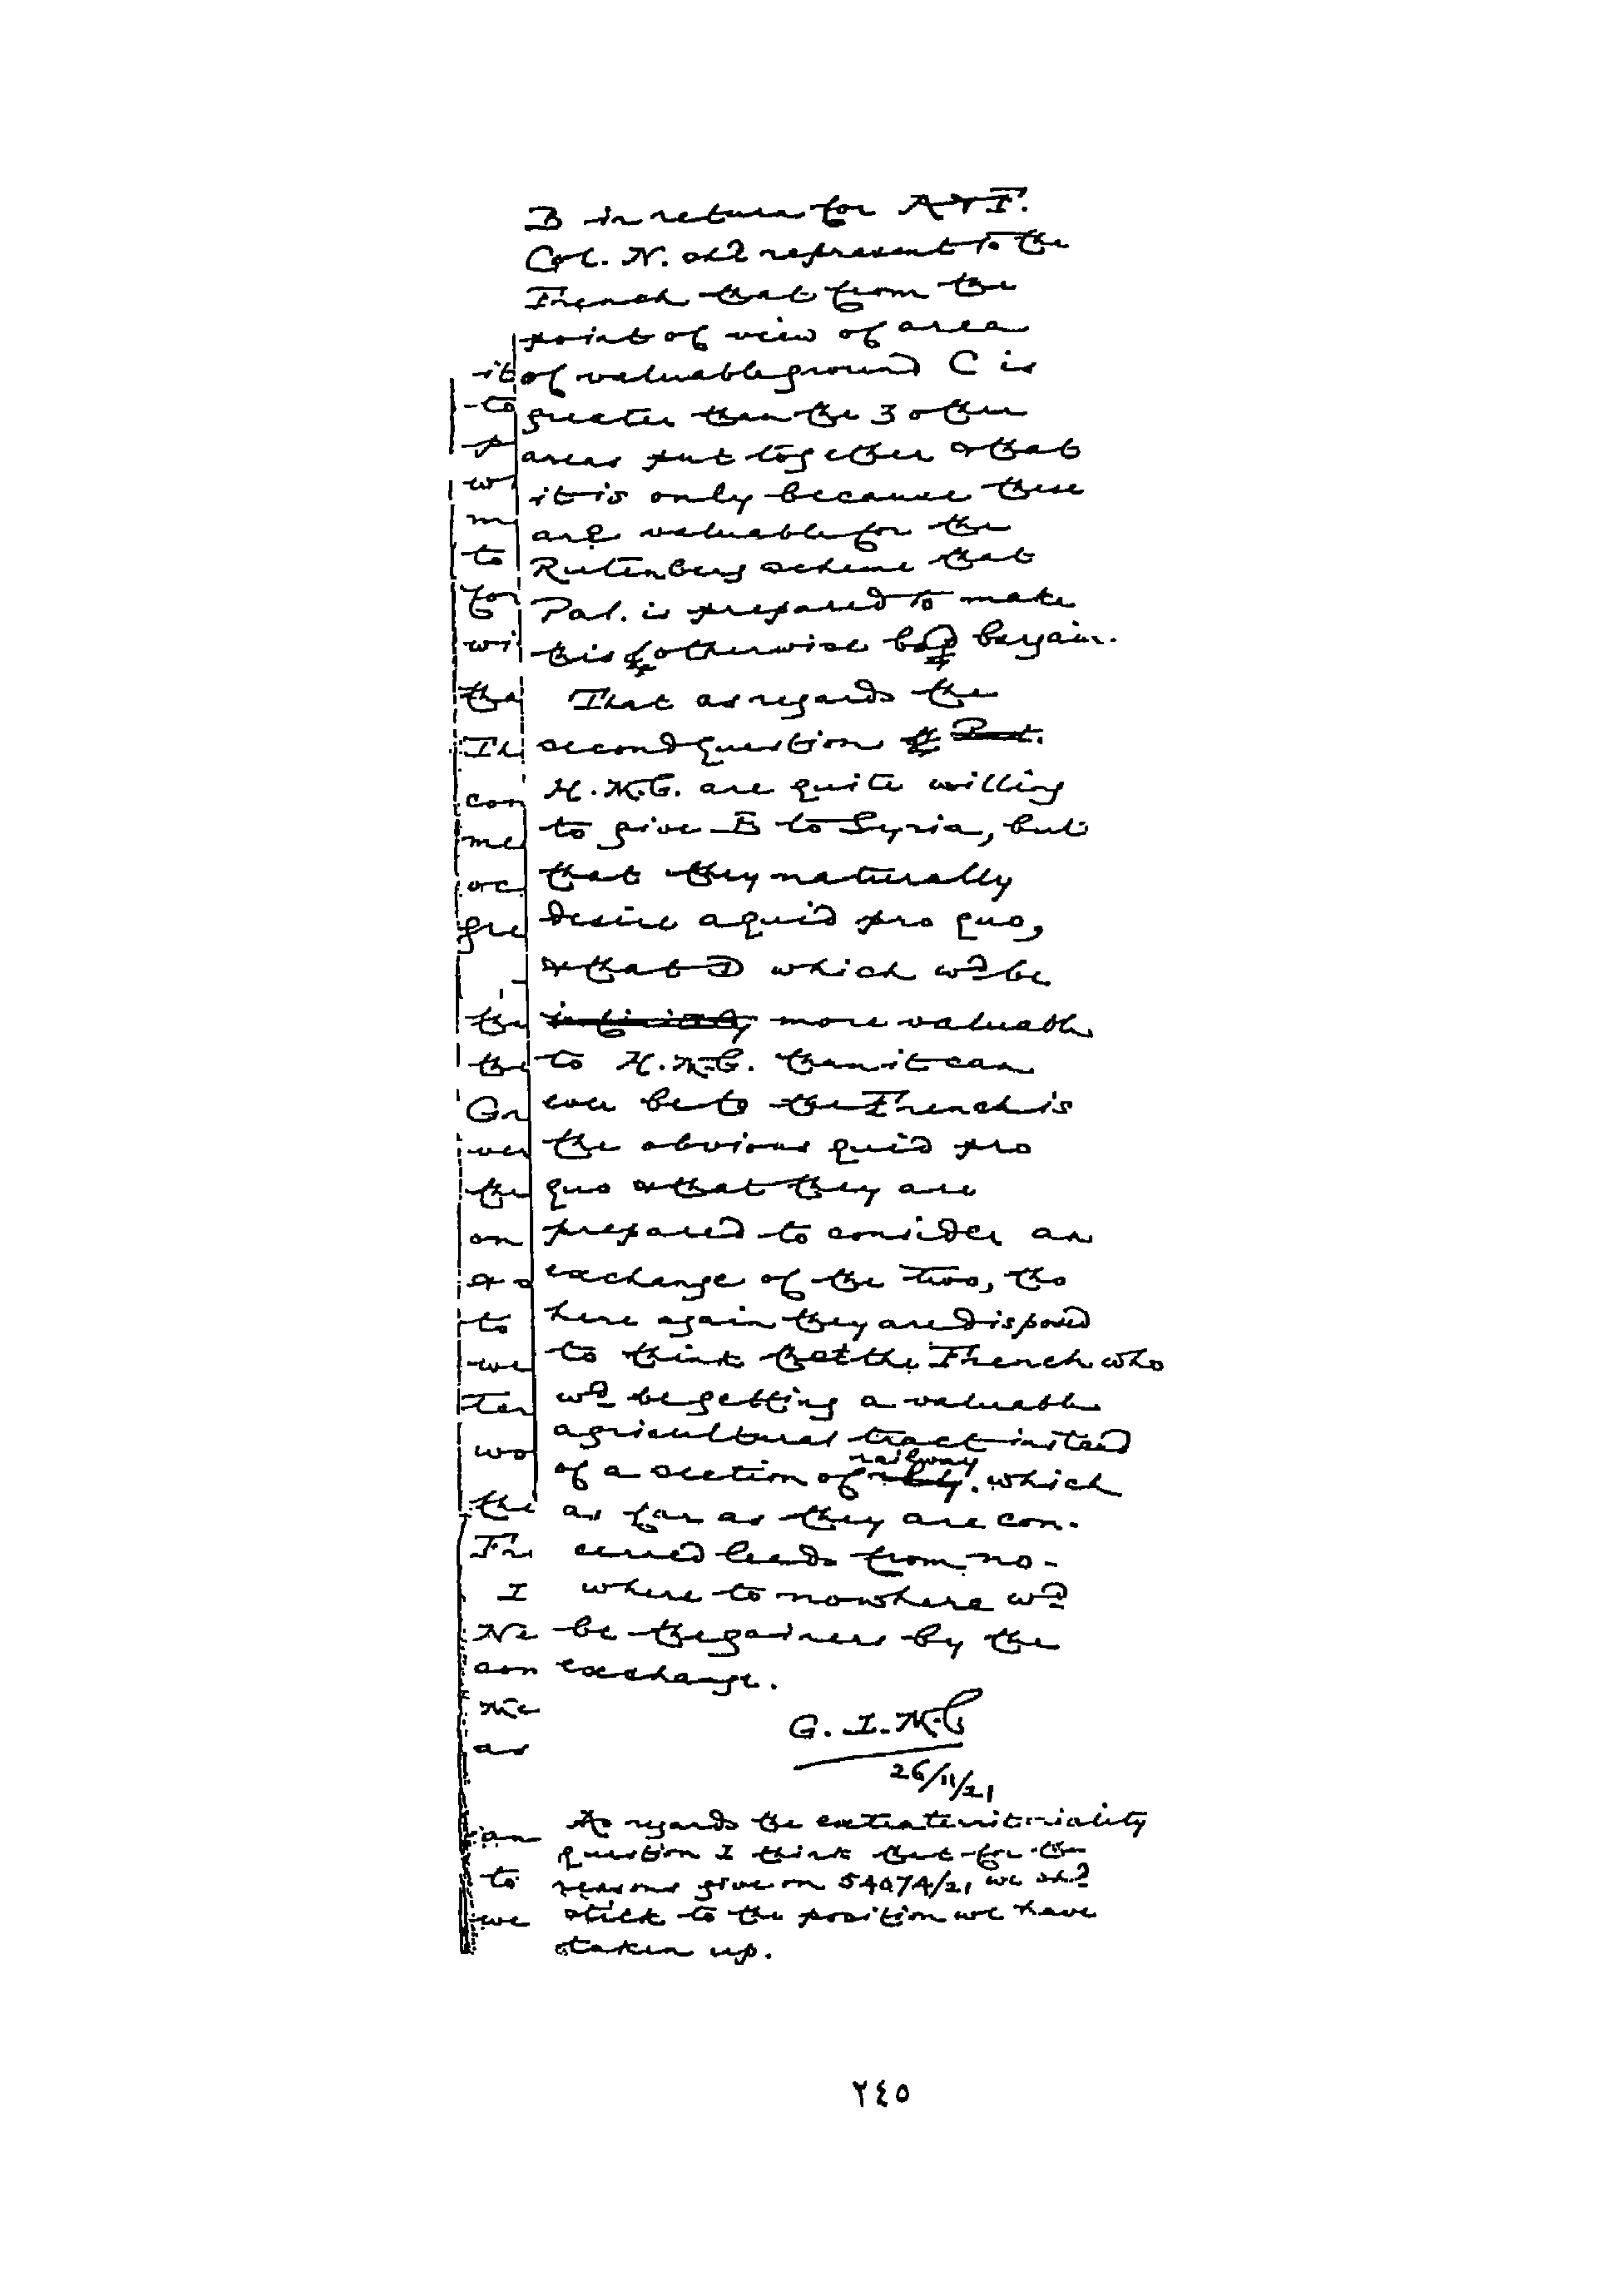 B in return for A & F.
Col. N. shd represent to the
French that from the
point of view of area
of valuable ground C is
greater than the 3 other
areas put together & that
it is only because these
are valuable for the
Rutenberg scheme that
Pal. is prepared to make
this otherwise bad bargain.
That as regards the
second question
H.M.G. are quite willing
to give E to Syria, but
that they naturally
desire a quid pro quo,
& that D which wd be
more valuable
to H.M.G. than it can
ever be to the French is
the obvious quid pro
quo & that they are
prepared to consider an
exchange of the two, tho
here again they are disposed
to think that the French who
wd be getting a valuable
agricultural tract instead
of a section of railway which
as far as they are con-
cerned leads from no-
where to nowhere wd
be the gainers by the
exchange.
G. L. M. C
26/11/21
As regards the extraterritoriality
question I think that for the
reasons give on 54074/21 we shd
stick to the position we have
taken up.
it
to
p
w
m
to
for
wi
tha
Th
con
me
oc
gre
tha
the
Gr
ver
the
on
& o
to
we
Ter
wo
the
Fr
I
Ne
con
Me
as
an
to
we
٢٤٥